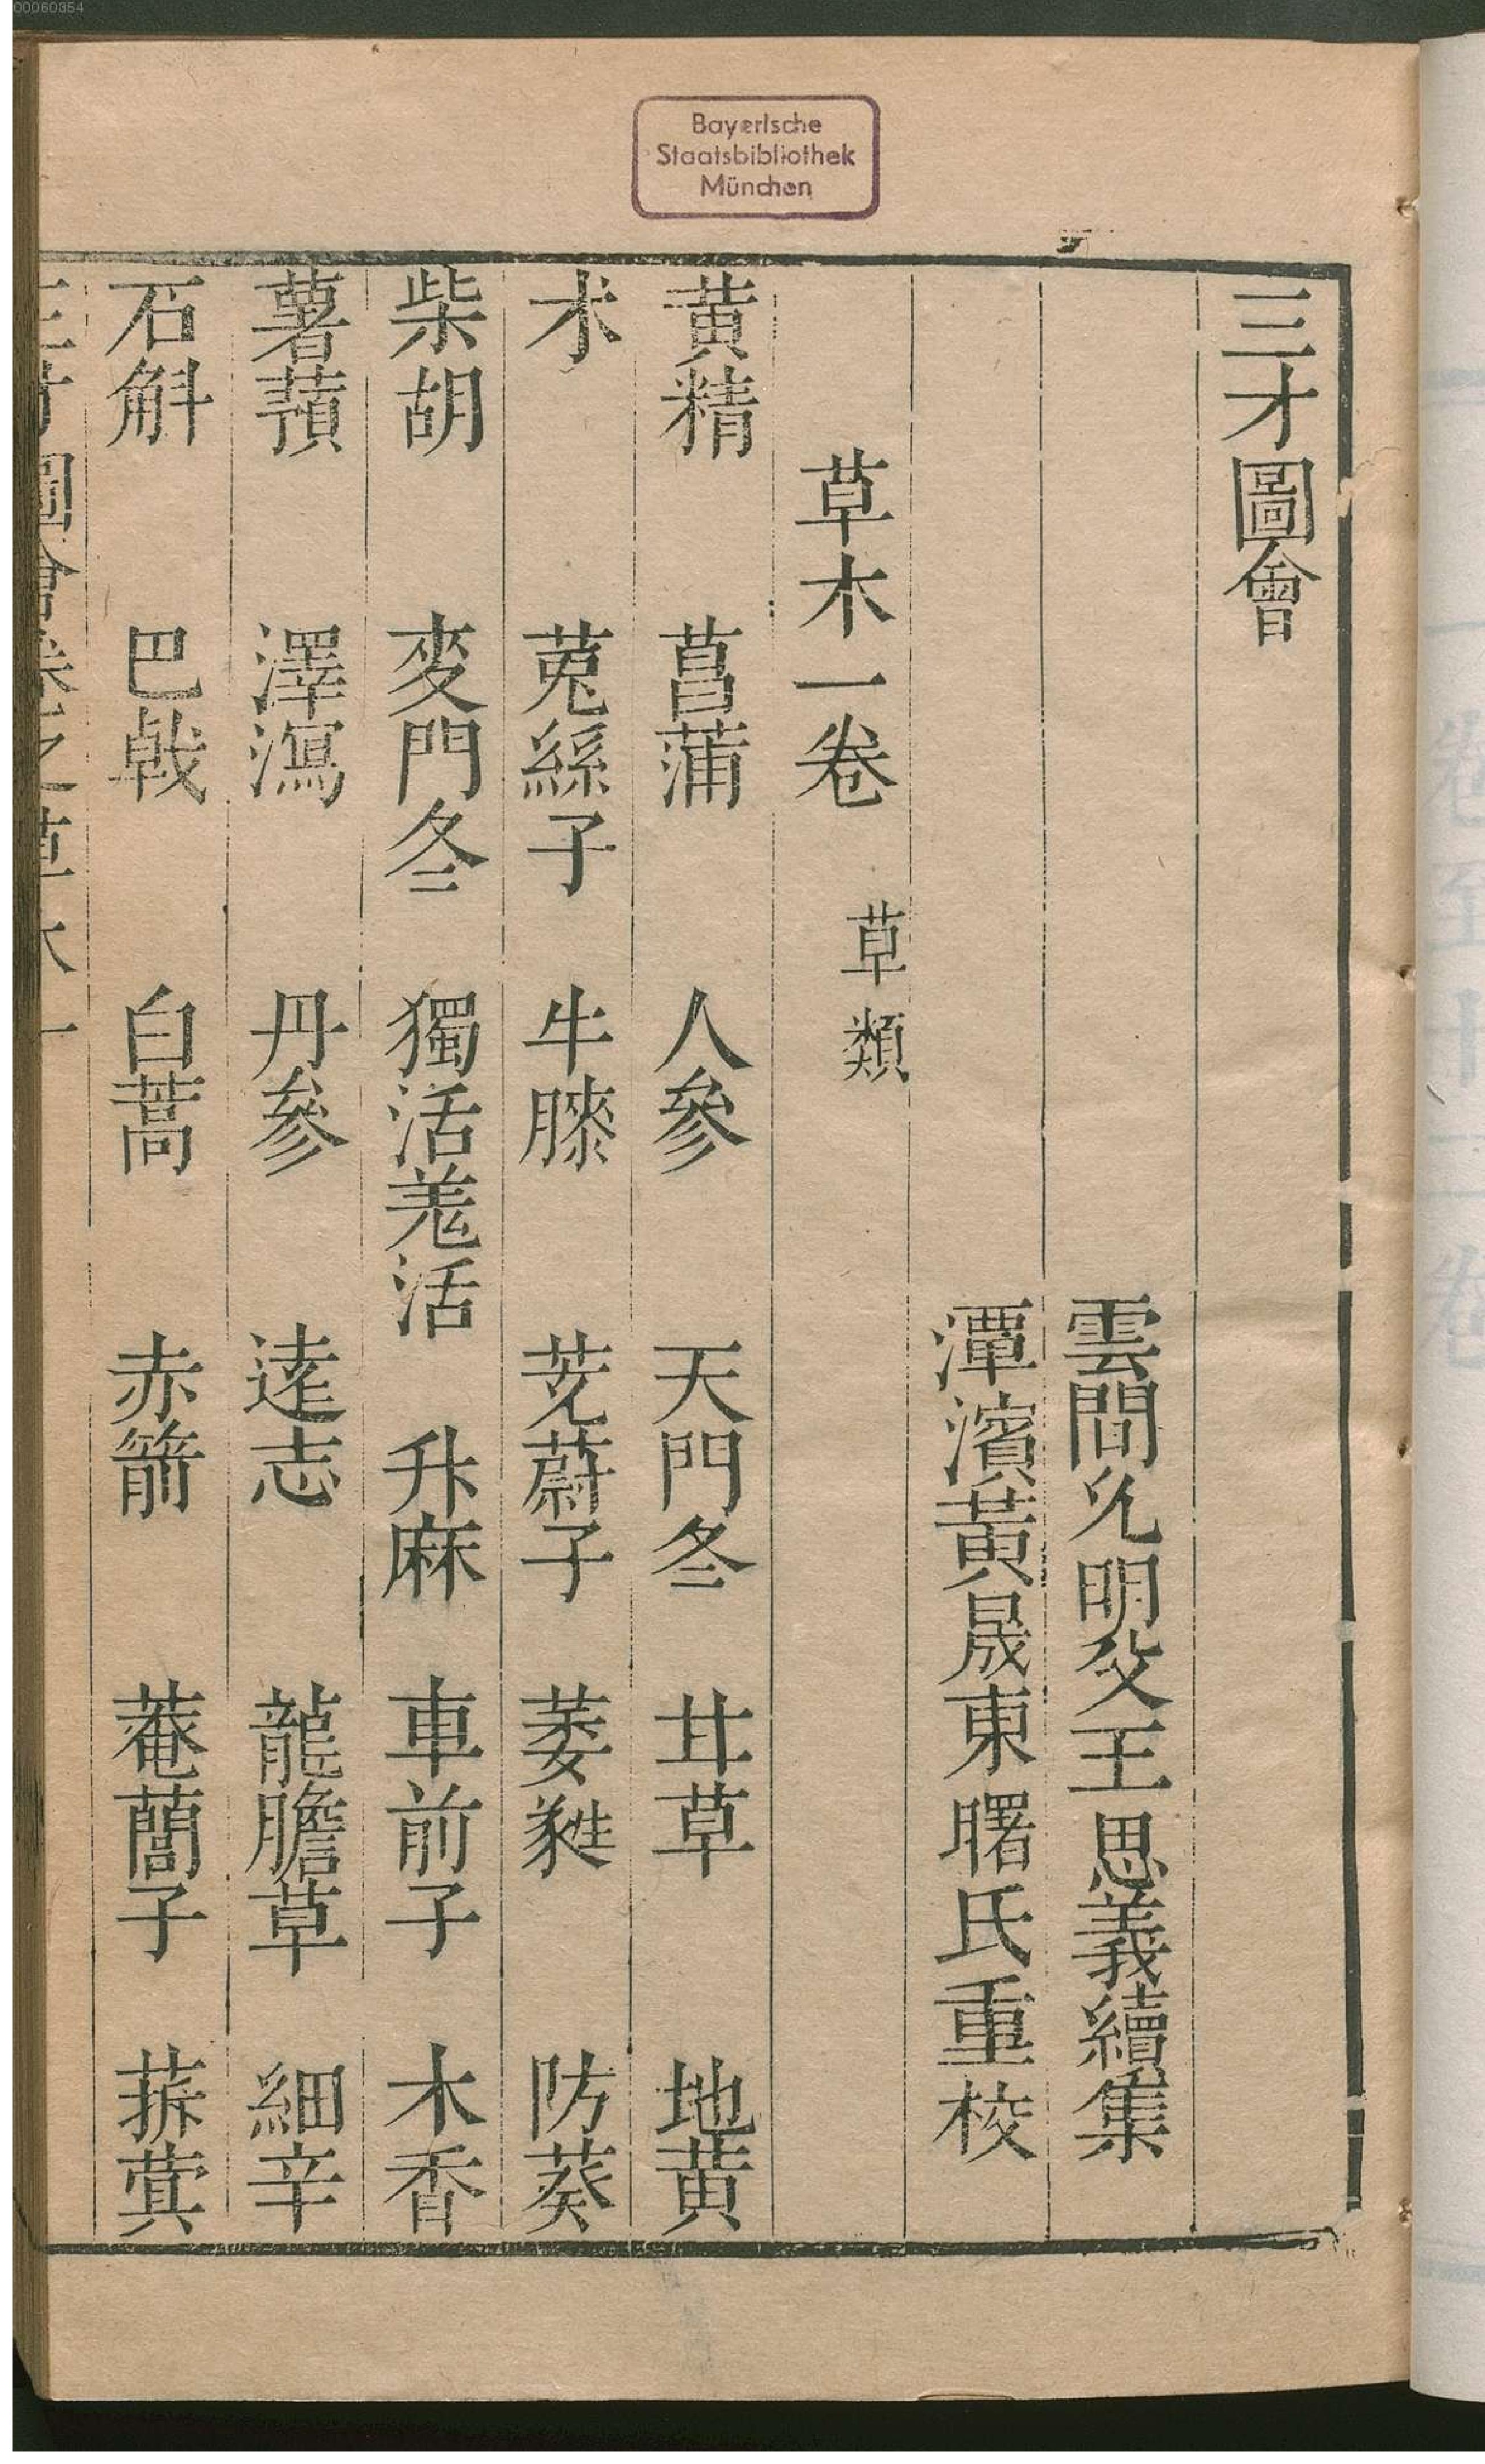 00060354
Bayerische
Staatsbibliothek
München
三才圖會
雲間允明父王思義續集
潭濱黃晟東曙氏重校
草木一卷 草類
黃精 菖蒲 人參 天門冬 甘草 地黃
术 菟絲子 牛膝 茺蔚子 萎蕤 防葵
柴胡 麥門冬 獨活羌活 升麻 車前子 木香
薯蕷 澤瀉 丹參 遠志 龍膽草 細辛
石斛 巴戟 白蒿 赤箭 菴䕡子 菥蓂
三才圖會卷之草木一